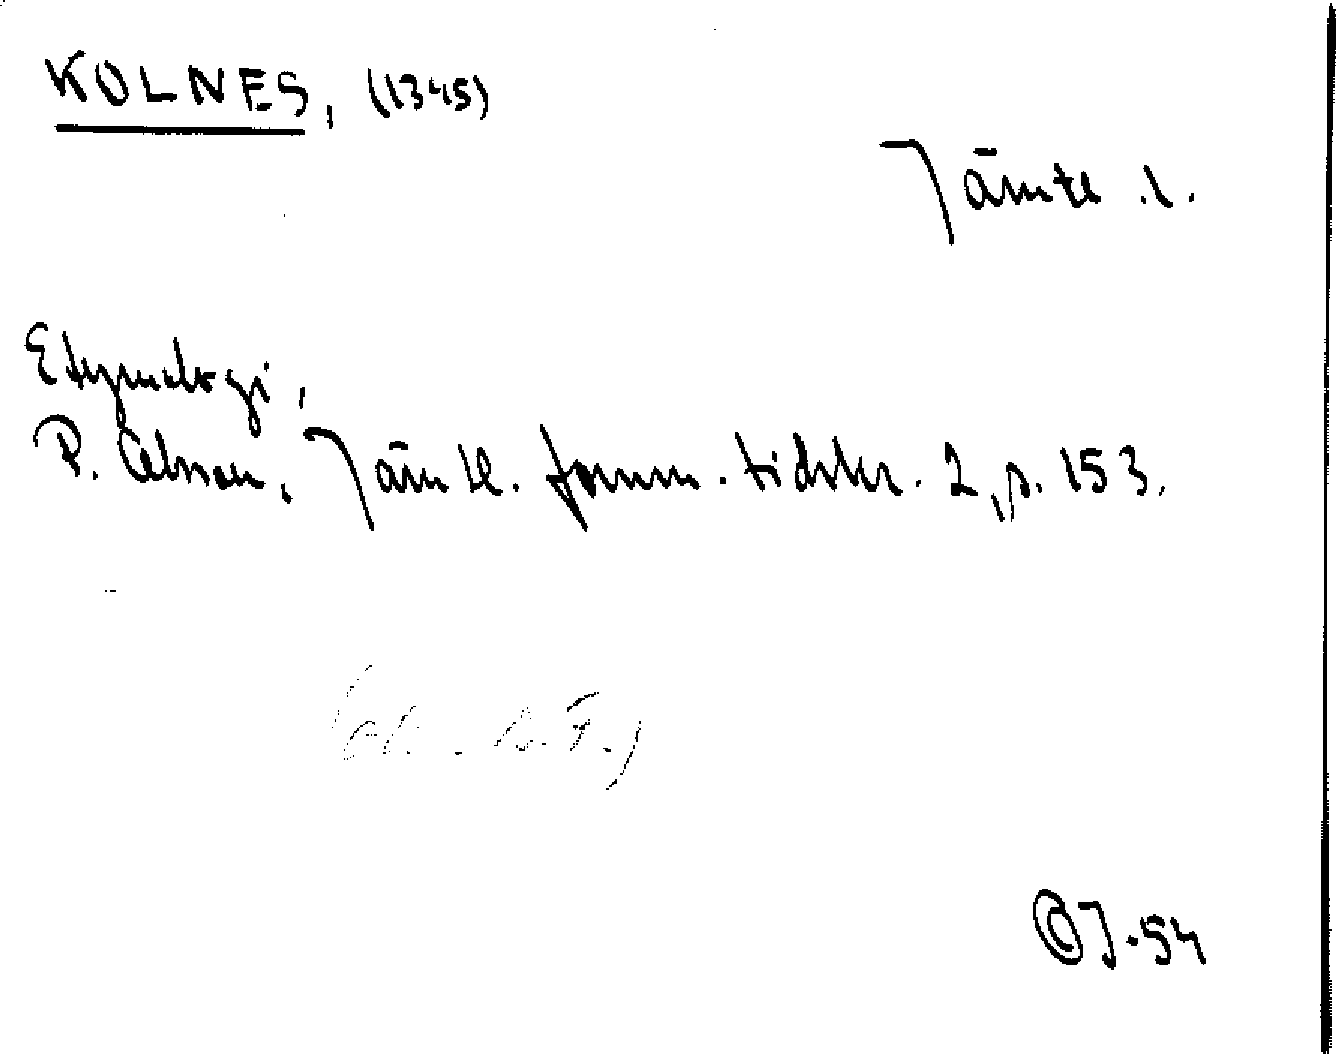 KOLNES, (1345)
Jämtl .l.
Etymologi,
P. Olsson, Jämtl. fornm. tidskr. 2, s. 153.
OJ-54